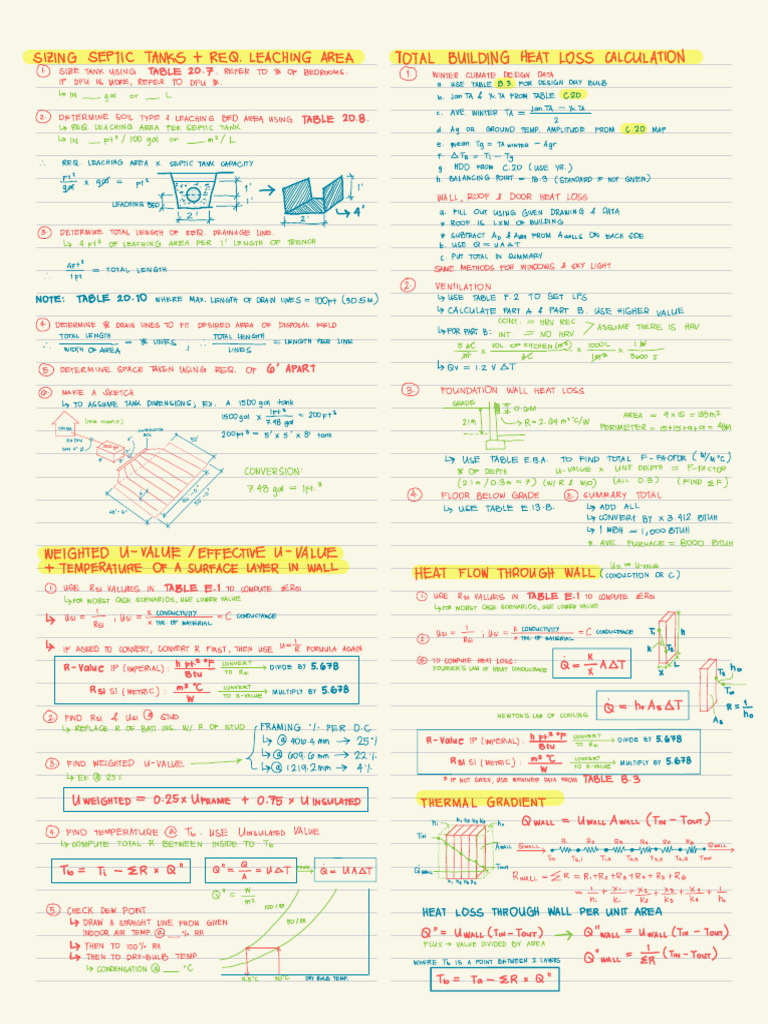 SIZING SEPTIC TANKS + REQ. LEACHING AREA
① SIZE TANK USING TABLE 20.7. REFER TO # OF BEDROOMS.
IF DFU IS MORE, REFER TO DFU #.
↳ IN ___ gal or ___ L
② DETERMINE SOIL TYPE & LEACHING BED AREA USING TABLE 20.8.
↳ REQ. LEACHING AREA PER SEPTIC TANK
↳ IN ___ ft²/100 gal or ___ m²/L
∴ REQ. LEACHING AREA x SEPTIC TANK CAPACITY
ft²/gal x gal = ft²
LEACHING BED
1'
1'
2'
1'
2'
4'
③ DETERMINE TOTAL LENGTH OF REQ. DRAINAGE LINE.
↳ 4 ft² OF LEACHING AREA PER 1' LENGTH OF TRENCH
∴ 4ft²/1ft = TOTAL LENGTH
NOTE: TABLE 20.10 WHERE MAX. LENGTH OF DRAIN LINES = 100ft (30.5M)
④ DETERMINE # DRAIN LINES TO FIT DESIRED AREA OF DISPOSAL FIELD
∴ TOTAL LENGTH/WIDTH OF AREA = # LINES ; ∴ TOTAL LENGTH/LINES = LENGTH PER LINE
⑤ DETERMINE SPACE TAKEN USING REQ. OF 6' APART
⑥ MAKE A SKETCH
↳ TO ASSUME TANK DIMENSIONS, EX. A 1500 gal tank
1500 gal x 1ft³/7.48 gal = 200ft³
200ft³ = 5' x 5' x 8' tank
50'
CONVERSION:
7.48 gal = 1ft.³
WEIGHTED U-VALUE / EFFECTIVE U-VALUE
+ TEMPERATURE OF A SURFACE LAYER IN WALL
① USE RSI VALUES IN TABLE E.1 TO COMPUTE ΣRSI
↳ FOR WORST CASE SCENARIOS, USE LOWER VALUE
↳ USI = 1/RSI ; USI = K CONDUCTIVITY/X THK. OF MATERIAL = C CONDUCTANCE
↳ IF ASKED TO CONVERT, CONVERT R FIRST, THEN USE U=1/R FORMULA AGAIN
R-Value IP (IMPERIAL): h ft² °F/Btu CONVERT TO RSI → DIVIDE BY 5.678
RSI SI (METRIC): m² °C/W CONVERT TO R-VALUE → MULTIPLY BY 5.678
② FIND RSI & USI @ STUD
↳ REPLACE R OF BATT INS. W/ R OF STUD
FRAMING % PER O.C
↳ @ 406.4 mm → 25%
↳ @ 609.6 mm → 22%
↳ @ 1219.2 mm → 4%
③ FIND WEIGHTED U-VALUE
↳ EX @ 25%
U WEIGHTED = 0.25 x U FRAME + 0.75 x U INSULATED
④ FIND TEMPERATURE @ T10. USE U INSULATED VALUE
↳ COMPUTE TOTAL R BETWEEN INSIDE TO T10
T10 = Ti - ΣR x Q"
Q" = Q/A = UΔT
Q̇ = UAΔT
Q" = W/m²
⑤ CHECK DEW POINT
↳ DRAW A STRAIGHT LINE FROM GIVEN
INDOOR AIR TEMP. @ ___ % RH
↳ THEN TO 100% RH
↳ THEN TO DRY-BULB TEMP
↳ CONDENSATION @ ___ °C
DRY BULB TEMP.
TOTAL BUILDING HEAT LOSS CALCULATION
① WINTER CLIMATE DESIGN DATA
a. USE TABLE B.3 FOR DESIGN DRY BULB
b. Jan TA & Yr. TA FROM TABLE C.20
c. AVE. WINTER TA = Jan TA - Yr. TA/2
d. Ag OR GROUND TEMP. AMPLITUDE FROM C.20 MAP
e. mean Tg = TA WINTER - Agr
f. ΔTB = Ti - Tg
g. HDD FROM C.20 (USE YR.)
h. BALANCING POINT = 18.3 (STANDARD IF NOT GIVEN)
WALL, ROOF & DOOR HEAT LOSS
a. FILL OUT USING GIVEN DRAWING & DATA
* ROOF IS LXM OF BUILDING
* SUBTRACT AD & AWR FROM AWALLS ON EACH SIDE
b. USE Q = UAΔT
c. PUT TOTAL IN SUMMARY
SAME METHODS FOR WINDOWS & SKY LIGHT
② VENTILATION
↳ USE TABLE F.2 TO GET LPS
↳ CALCULATE PART A & PART B. USE HIGHER VALUE
↳ FOR PART B: CONT. = HRV REC.
INT. = NO HRV
ASSUME THERE IS HRV
5 AC/AC x VOL. OF KITCHEN (m³) x 1000L/1m³ x 1/3600 s
↳ QV = 1.2 V ΔT
③ FOUNDATION WALL HEAT LOSS
GRADE
0.6M
2.1M
R = 2.64 m²C/W
AREA = 9 x 15 = 135m²
PERIMETER = 15+15+9+9 = 48M
↳ USE TABLE E.8A. TO FIND TOTAL F-FACTOR (W/M°C)
# OF DEPTH U-VALUE x UNIT DEPTH = F-FACTOR
(2.1m / 0.3m = 7) (W/ R & W/O) (ALL 0.3) (FIND ΣF)
④ FLOOR BELOW GRADE
↳ USE TABLE E 13.B.
⑤ SUMMARY TOTAL
↳ ADD ALL
↳ CONVERT BY x 3.412 BTUH
↳ 1 MBH = 1,000 BTUH
* AVE. FURNACE = 8000 BTUH
HEAT FLOW THROUGH WALL (CONDUCTION OR C)
USI = U-VALUE
① USE RSI VALUES IN TABLE E.1 TO COMPUTE ΣRSI
↳ FOR WORST CASE SCENARIOS, USE LOWER VALUE
② USI = 1/RSI ; USI = K CONDUCTIVITY/X THK. OF MATERIAL = C CONDUCTANCE
③ TO COMPUTE HEAT LOSS:
FOURIER'S LAW OF HEAT CONDUCTANCE
Q̇ = K/X AΔT
NEWTON'S LAW OF COOLING
Q̇ = ho AsΔT
R = 1/ho
R-Value IP (IMPERIAL): h ft² °F/Btu CONVERT TO RSI → DIVIDE BY 5.678
RSI SI (METRIC): m² °C/W CONVERT TO R-VALUE → MULTIPLY BY 5.678
* IF NOT GIVEN, USE WEATHER DATA FROM TABLE B.3
THERMAL GRADIENT
Q WALL = U WALL A WALL (TIN - TOUT)
R WALL = ΣR = R1+R2+R3+R4+R5+R6
= 1/hi + X1/K1 + X2/K2 + X3/K3 + X4/K4 + 1/ho
HEAT LOSS THROUGH WALL PER UNIT AREA
Q" = U WALL (TIN - TOUT) → Q" WALL = U WALL (TIN - TOUT)
FLUX → VALUE DIVIDED BY AREA
Q" WALL = 1/ΣR (TIN - TOUT)
WHERE T10 IS A POINT BETWEEN 2 LAYERS
T10 = Ta - ΣR x Q"